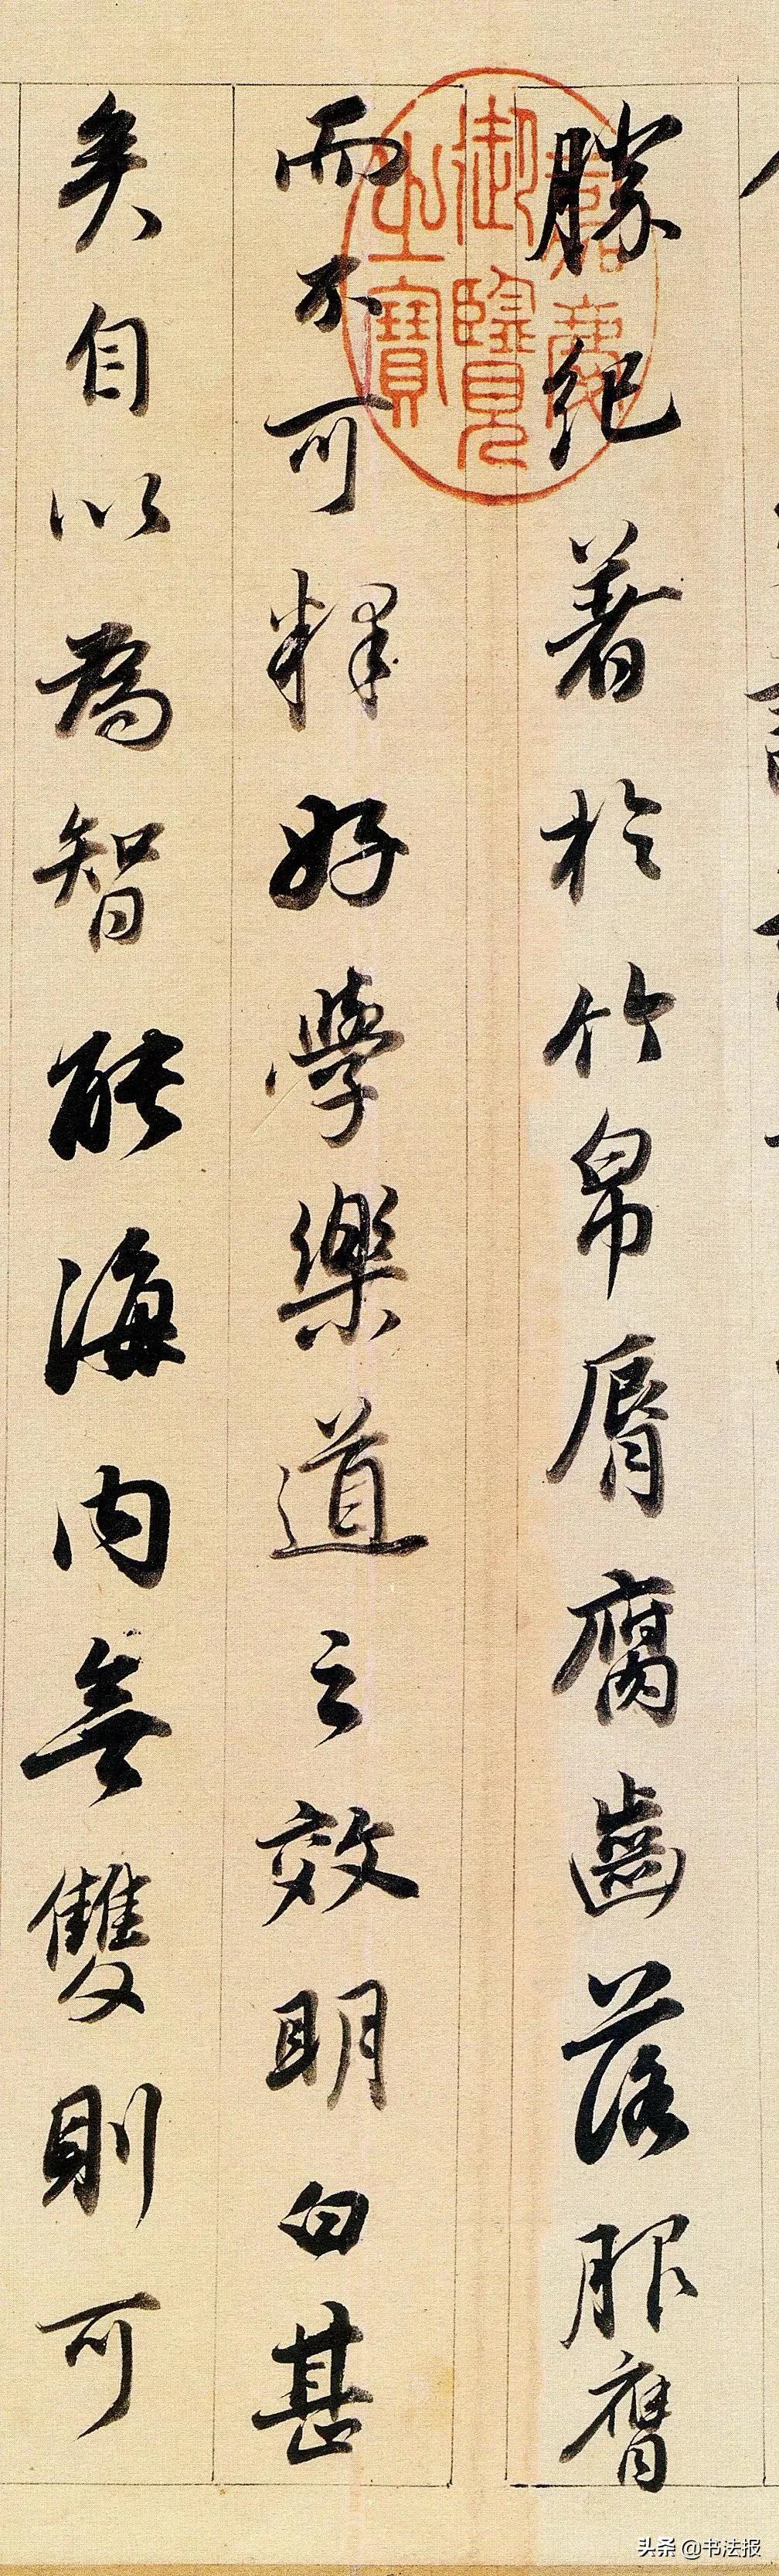 勝紀著於竹帛脣腐齒落服膺
而不可釋好學樂道之效明白甚
矣自以為智能海內無雙則可
嘉慶御覽之寶
头条 @书法报